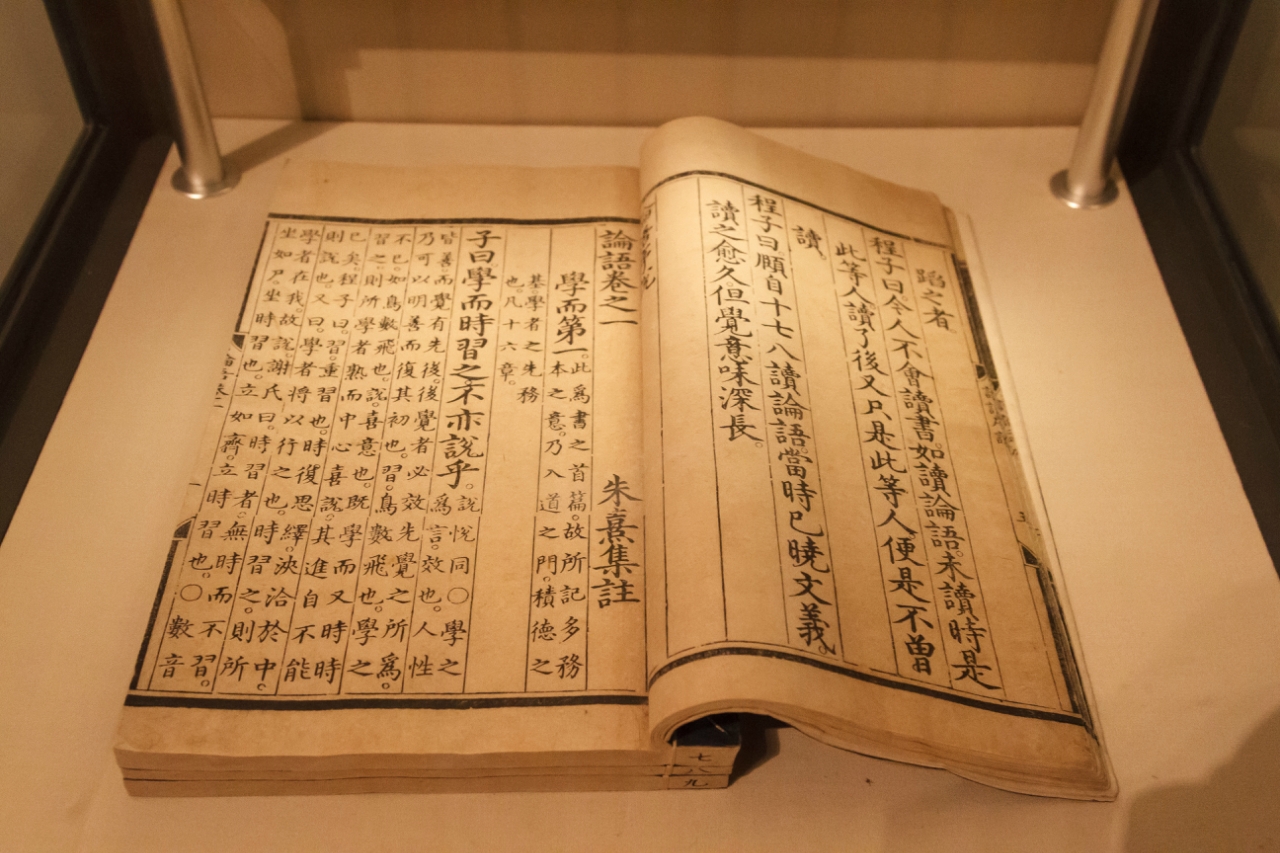 蹈之者
程子曰今人不會讀書。如讀論語。未讀時是
此等人。讀了後又只是此等人。便是不曾
讀。
程子曰頤自十七八讀論語。當時已曉文義。
讀之愈久。但覺意味深長。
論語卷之一 朱熹集註
學而第一。此爲書之首篇。故所記多務
本之意。乃入道之門。積德之
基學者之先務
也。凡十六章。
子曰學而時習之不亦說乎。說悅同○學之
爲言。效也。人性
皆善。而覺有先後。後覺者必效先覺之所爲。
乃可以明善而復其初也。習。鳥數飛也。學之
不已。如鳥數飛也。說。喜意也。既學而又時時
習之。則所學者熟而中心喜說。其進自不能
已矣。程子曰。習。重習也。時復思繹。浹洽於中。
則說也。又曰。學者將以行之也。時習之。則所
學者在我。故說。謝氏曰。時習者。無時而不習。
坐如尸。坐時習也。立如齊。立時習也。○數音
七
八
九